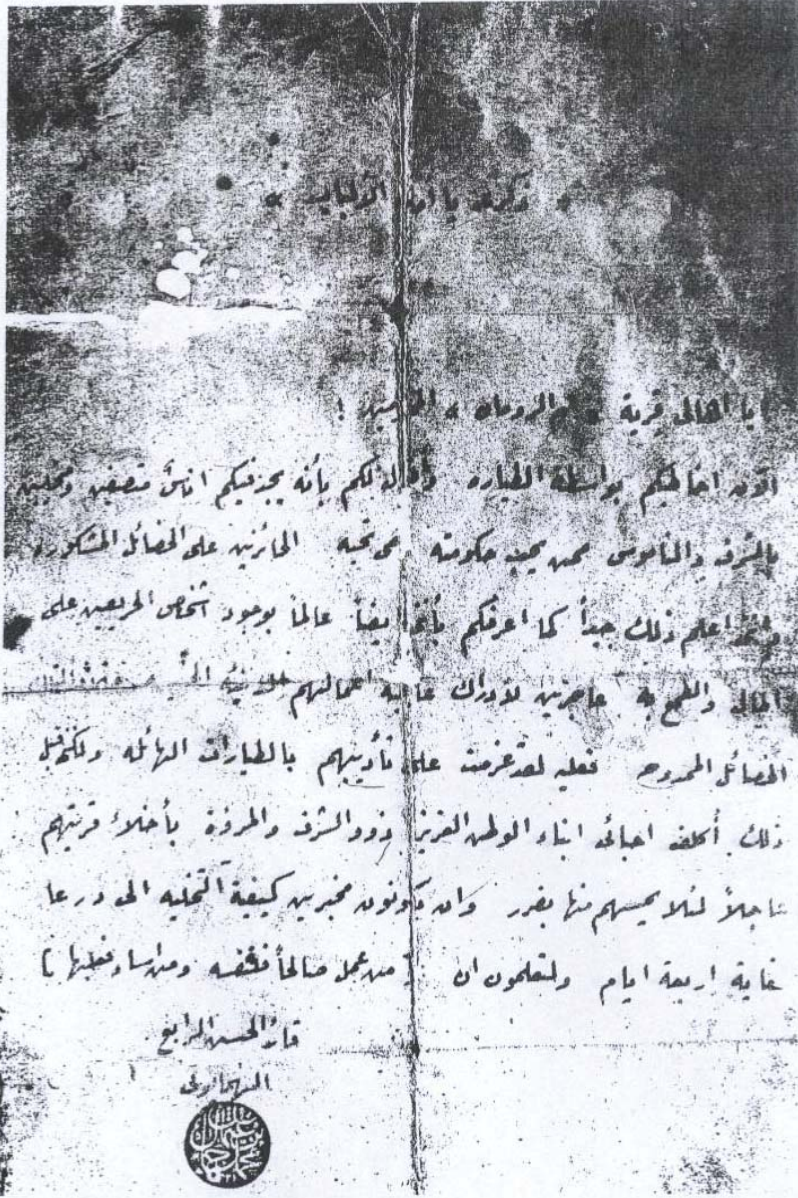 « ذكرى يا أولي الألباب »
ايا اهالى قرية « ام الرومان » !
اخاطبكم بواسطة الطياره وأقول لكم بأنه يوجد فيكم اناس متصفين
بالشرف والناموس ممن يحب حكومته الحائزين على الخصائل المشكوره
اعلم ذلك جيداً كما اعرفكم بأننى ايضاً عالماً بوجود اشخاص الحريصين على
المال والطمع به عاجزين لادراك عاقبة اعمالهم
الخصائل الممدوحه فعليه لقد عزمت على تأديبهم بالطيارات الهائله ولكن قبل
ذلك أكلف احبائى ابناء الوطن العزيز ذوو الشرف والمروؤة بأخلاء قريتهم
عاجلاً لئلا يمسهم منها بضرر وان يكونون مخبرين كيفية التخليه الى درعا
غاية اربعة ايام ولتعلمون ان من عمل صالحاً فلنفسه ومن اساء فعليها
الرابع